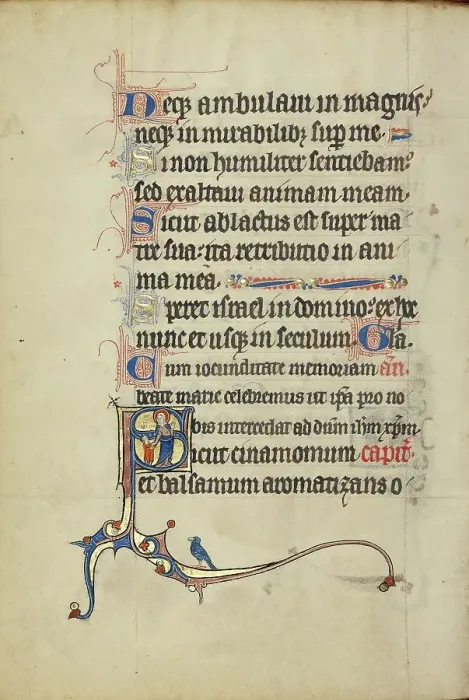 Neqꝫ ambulaui in magnis:
neqꝫ in mirabilibꝫ sup̱ me.
Si non humiliter sentiebam:
sed exaltaui animam meam.
Sicut ablactus est super ma
tre sua: ita retributio in ani
ma mea.
Speret israel in domino: ex hoc
nunc et usqꝫ in seculum. Gl̃a.
Cum iocunditate memoriam añ.
beate marie celebremus ut ip̃a pro no
bis intercedat ad dñm ihm xp̃m.
Sicut cinamomum capit̃.
et balsamum aromatizans o